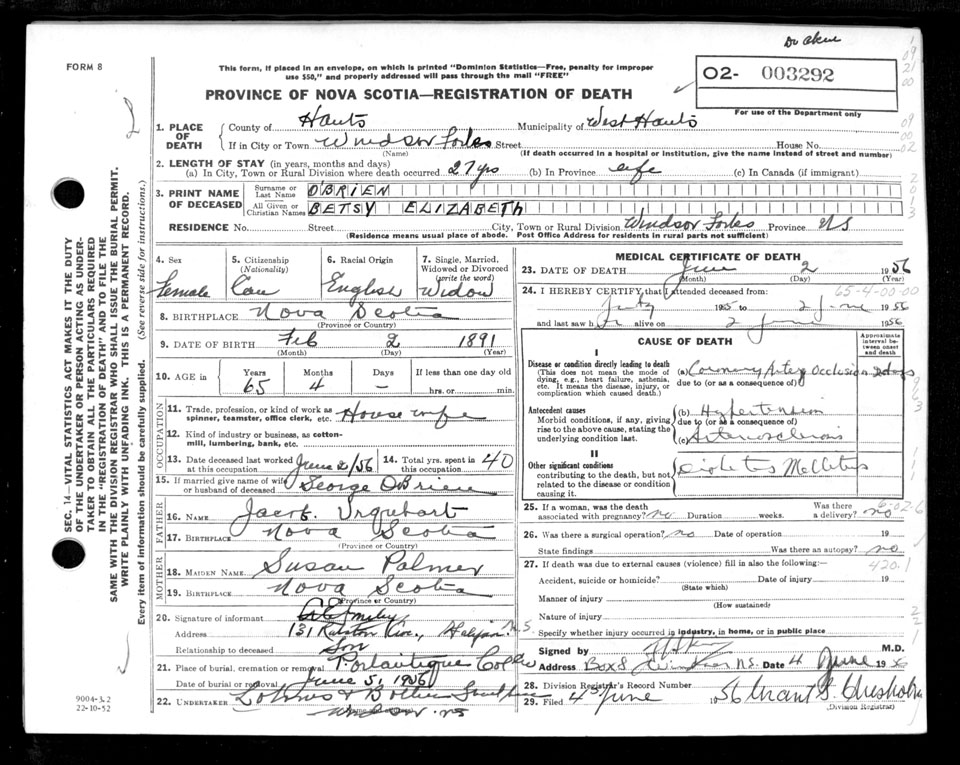 Dr Akin
FORM 8
This form, if placed in an envelope, on which is printed "Dominion Statistics—Free, penalty for improper
use $50," and properly addressed will pass through the mail "FREE"
02- 003292
PROVINCE OF NOVA SCOTIA—REGISTRATION OF DEATH
For use of the Department only
1. PLACE OF DEATH
County of Hants Municipality of West Hants
If in City or Town Windsor Forks Street House No.
(Name) (If death occurred in a hospital or institution, give the name instead of street and number)
2. LENGTH OF STAY (in years, months and days)
(a) In City, Town or Rural Division where death occurred 27 yrs (b) In Province life (c) In Canada (if immigrant)
3. PRINT NAME OF DECEASED
Surname or Last Name OBRIEN
All Given or Christian Names BETSY ELIZABETH
RESIDENCE No. Street City, Town or Rural Division Windsor Forks Province NS
(Residence means usual place of abode. Post Office Address for residents in rural parts not sufficient)
4. Sex Female
5. Citizenship (Nationality) Can
6. Racial Origin English
7. Single, Married, Widowed or Divorced (write the word) Widow
8. BIRTHPLACE Nova Scotia
(Province or Country)
9. DATE OF BIRTH Feb 2 1891
(Month) (Day) (Year)
10. AGE in Years Months Days If less than one day old
65 4 – hrs. or min.
OCCUPATION
11. Trade, profession, or kind of work as spinner, teamster, office clerk, etc. Housewife
12. Kind of industry or business, as cotton-mill, lumbering, bank, etc.
13. Date deceased last worked at this occupation June 2/56 14. Total yrs. spent in this occupation 40
15. If married give name of wife or husband of deceased George OBrien
FATHER
16. NAME Jacob Urquhart
17. BIRTHPLACE Nova Scotia
(Province or Country)
MOTHER
18. MAIDEN NAME Susan Palmer
19. BIRTHPLACE Nova Scotia
(Province or Country)
20. Signature of informant
Address 131 Ralston Ave., Halifax N.S.
Relationship to deceased Son
21. Place of burial, cremation or removal Portaupique Col Co
Date of burial or removal June 5, 1956
22. UNDERTAKER
Windsor NS
MEDICAL CERTIFICATE OF DEATH
23. DATE OF DEATH June 2 1956
(Month) (Day) (Year)
24. I HEREBY CERTIFY that I attended deceased from: 65-4-00-00
July 1955 to 2 June 1956
and last saw h alive on 2 June 1956
CAUSE OF DEATH
Approximate interval between onset and death
I
Disease or condition directly leading to death
(This does not mean the mode of dying, e.g., heart failure, asthenia, etc. It means the disease, injury, or complication which caused death.)
(a) Coronary Artery Occlusion
due to (or as a consequence of)
Antecedent causes
Morbid conditions, if any, giving rise to the above cause, stating the underlying condition last.
(b) Hypertension
due to (or as a consequence of)
(c) Arteriosclerosis
II
Other significant conditions
contributing to the death, but not related to the disease or condition causing it.
Diabetes Mellitus
25. If a woman, was the death associated with pregnancy? no Duration weeks. Was there a delivery? no
26. Was there a surgical operation? no Date of operation 19
State findings Was there an autopsy? no
27. If death was due to external causes (violence) fill in also the following:— 420.1
Accident, suicide or homicide? Date of injury 19
(State which)
Manner of injury
(How sustained)
Nature of injury
Specify whether injury occurred in industry, in home, or in public place
Signed by M.D.
Address Box 8 Windsor N.S. Date 4 June 1956
28. Division Registrar's Record Number
29. Filed 4 June 1956 Grant S. Chisholm
(Division Registrar)
SEC. 14—VITAL STATISTICS ACT MAKES IT THE DUTY
OF THE UNDERTAKER OR PERSON ACTING AS UNDER-
TAKER TO OBTAIN ALL THE PARTICULARS REQUIRED
IN THE "REGISTRATION OF DEATH" AND TO FILE THE
SAME WITH THE DIVISION REGISTRAR WHO SHALL ISSUE THE BURIAL PERMIT.
WRITE PLAINLY WITH UNFADING INK. THIS IS A PERMANENT RECORD.
Every item of information should be carefully supplied. (See reverse side for instructions.)
9004-3.2
22-10-52